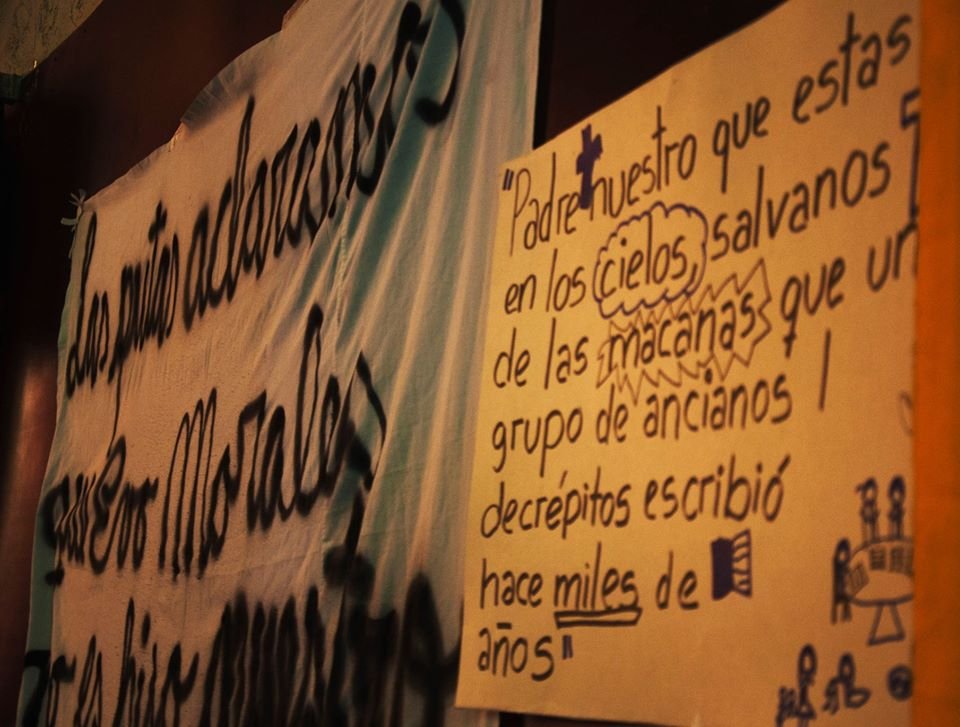 Las putas aclaramos
que Evo Morales
no es hijo nuestro
"Padre nuestro que estas
en los cielos, salvanos
de las macanas que un
grupo de ancianos
decrépitos escribió
hace miles de
años"